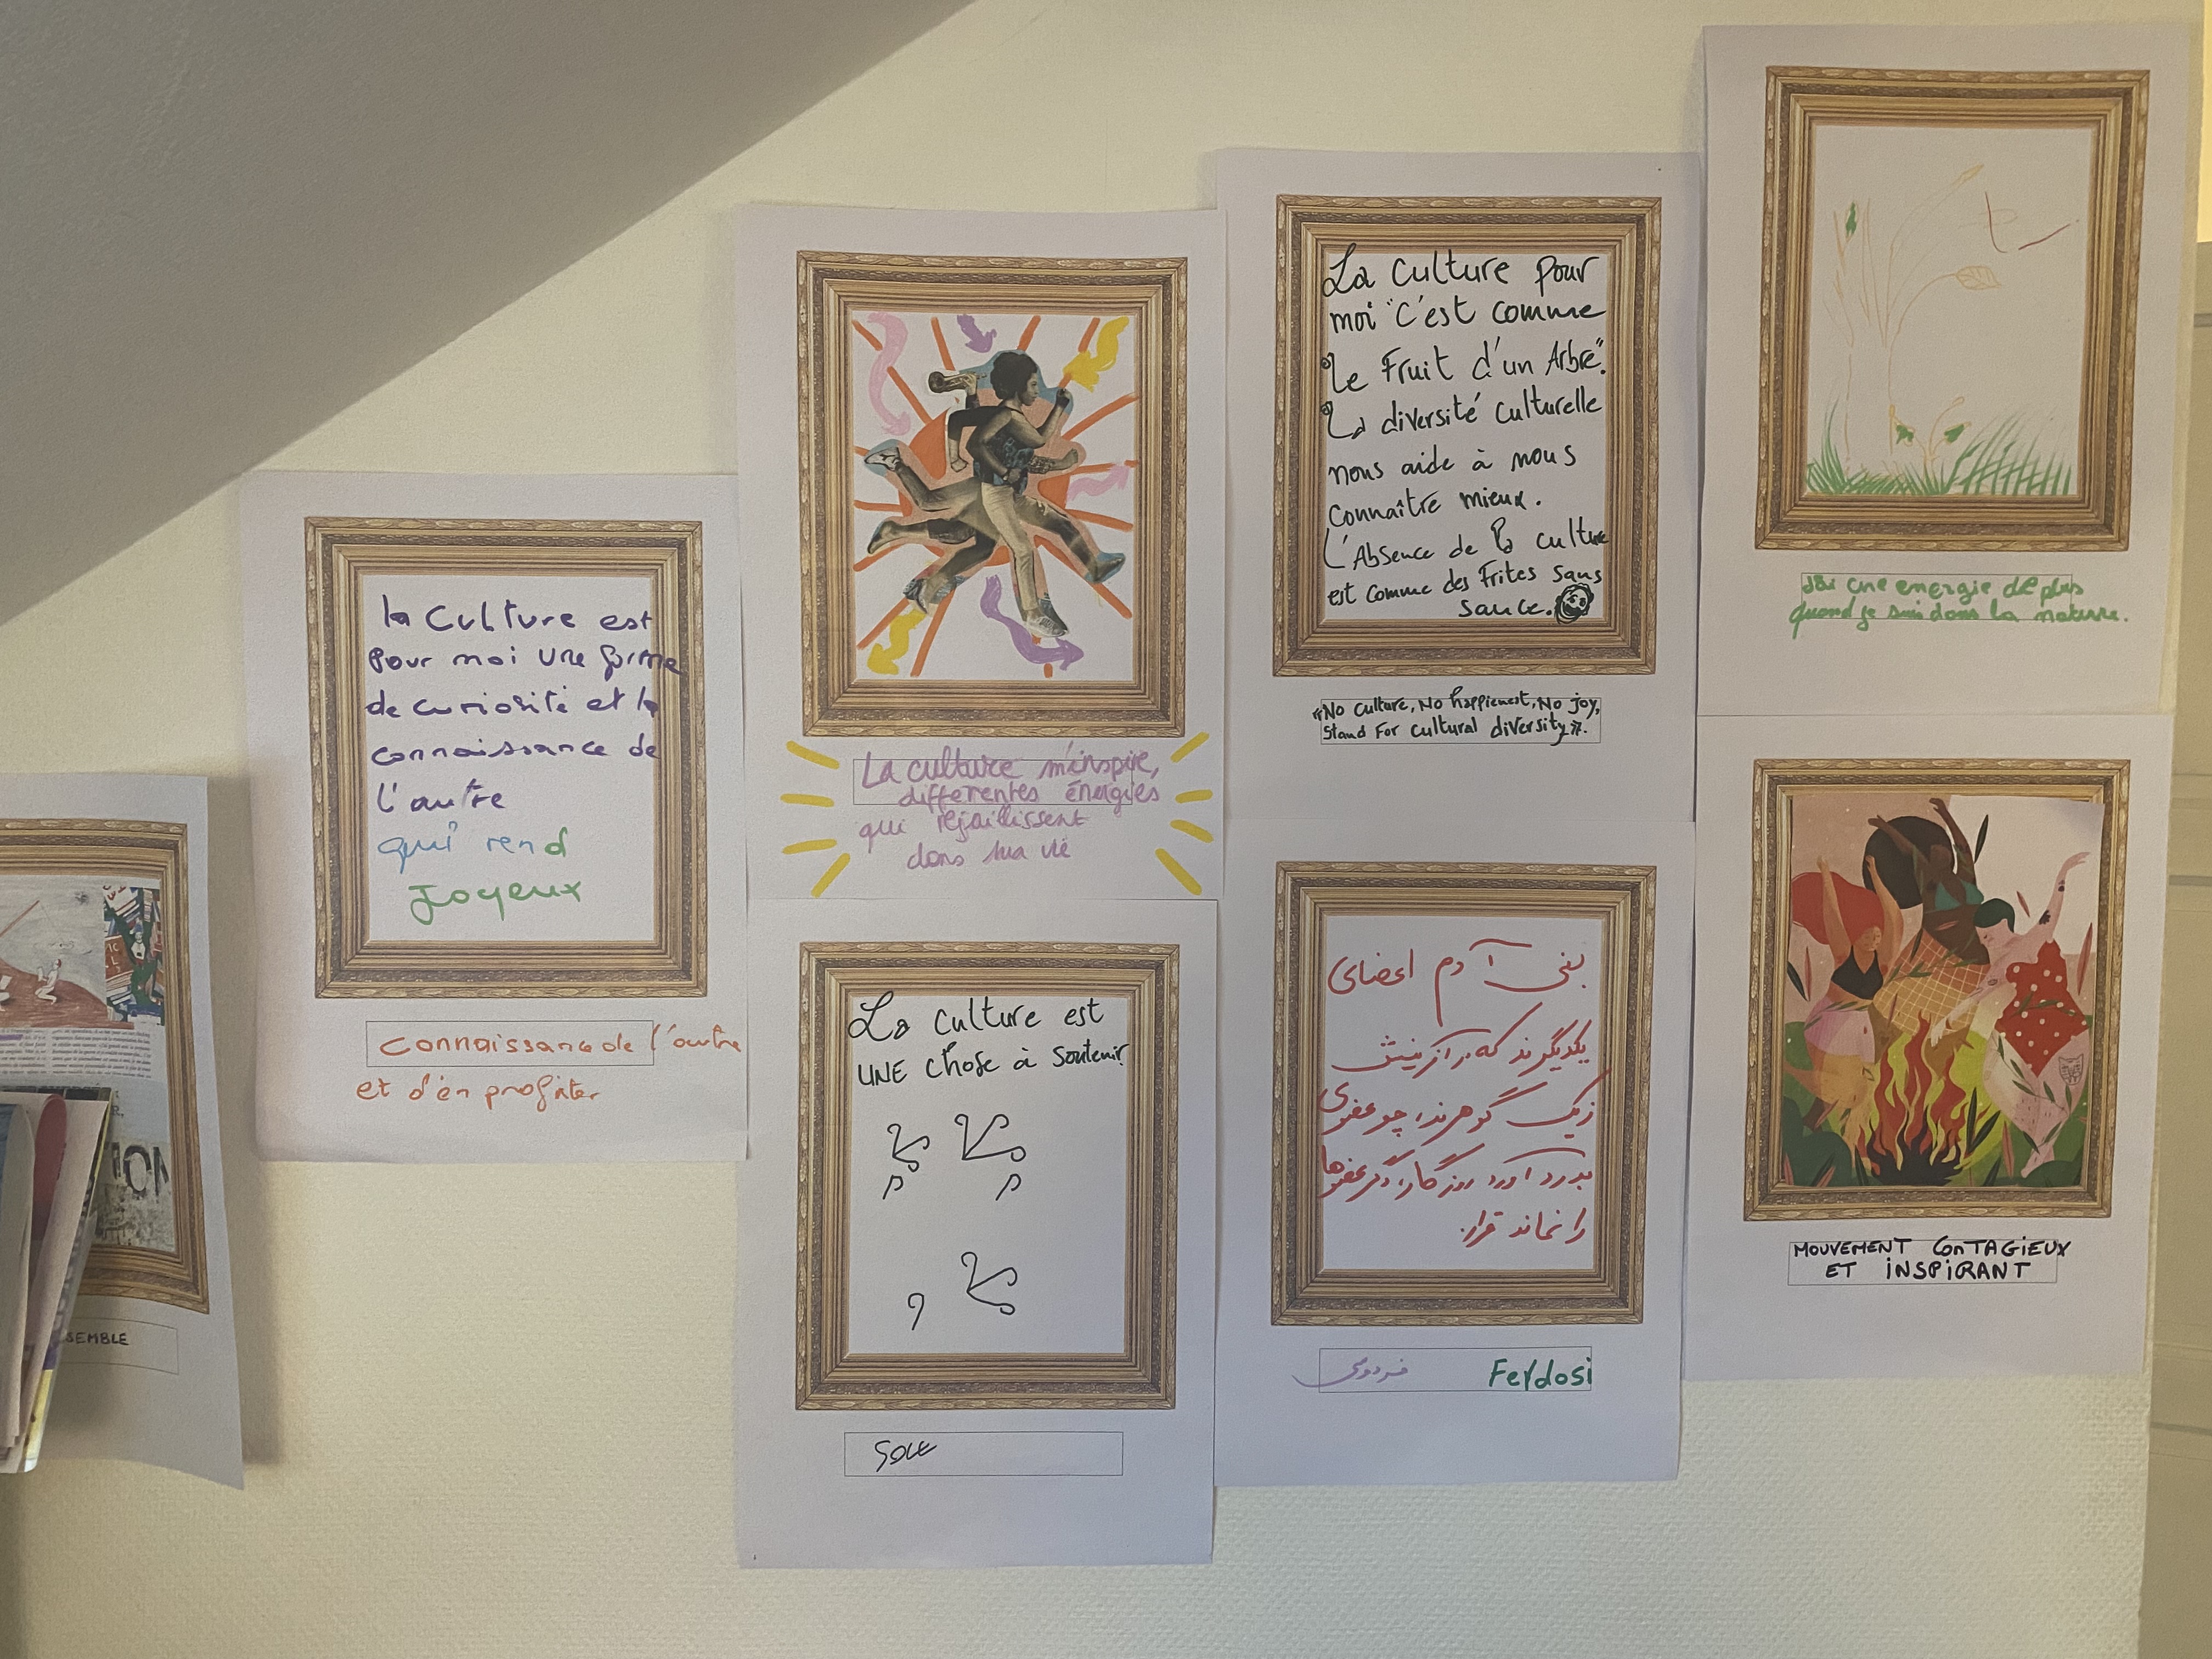 SEMBLE
la Culture est
pour moi une forme
de curiosité et la
connaissance de
l'autre
qui rend
Joyeux
connaissance de l'autre
et d'en profiter
La culture m'inspire,
differentes énergies
qui rejaillissent
dans ma vie
La culture est
UNE chose à soutenir
SOLE
La culture pour
moi "c'est comme
le Fruit d'un Arbre".
La diversité culturelle
nous aide à nous
connaître mieux.
L'Absence de la culture
est comme des Frites sans
sauce.
"No culture, No happienest, No joy,
Stand For cultural diversity".
بنی آدم اعضای
یکدیگرند که در آفرینش
ز یک گوهرند، چو عضوی
بدرد آورد روزگار، دگر عضوها
را نماند قرار.
فردوسی Ferdosi
J'ai une energie de plus
quand je suis dans la nature.
MOUVEMENT CONTAGIEUX
ET INSPIRANT